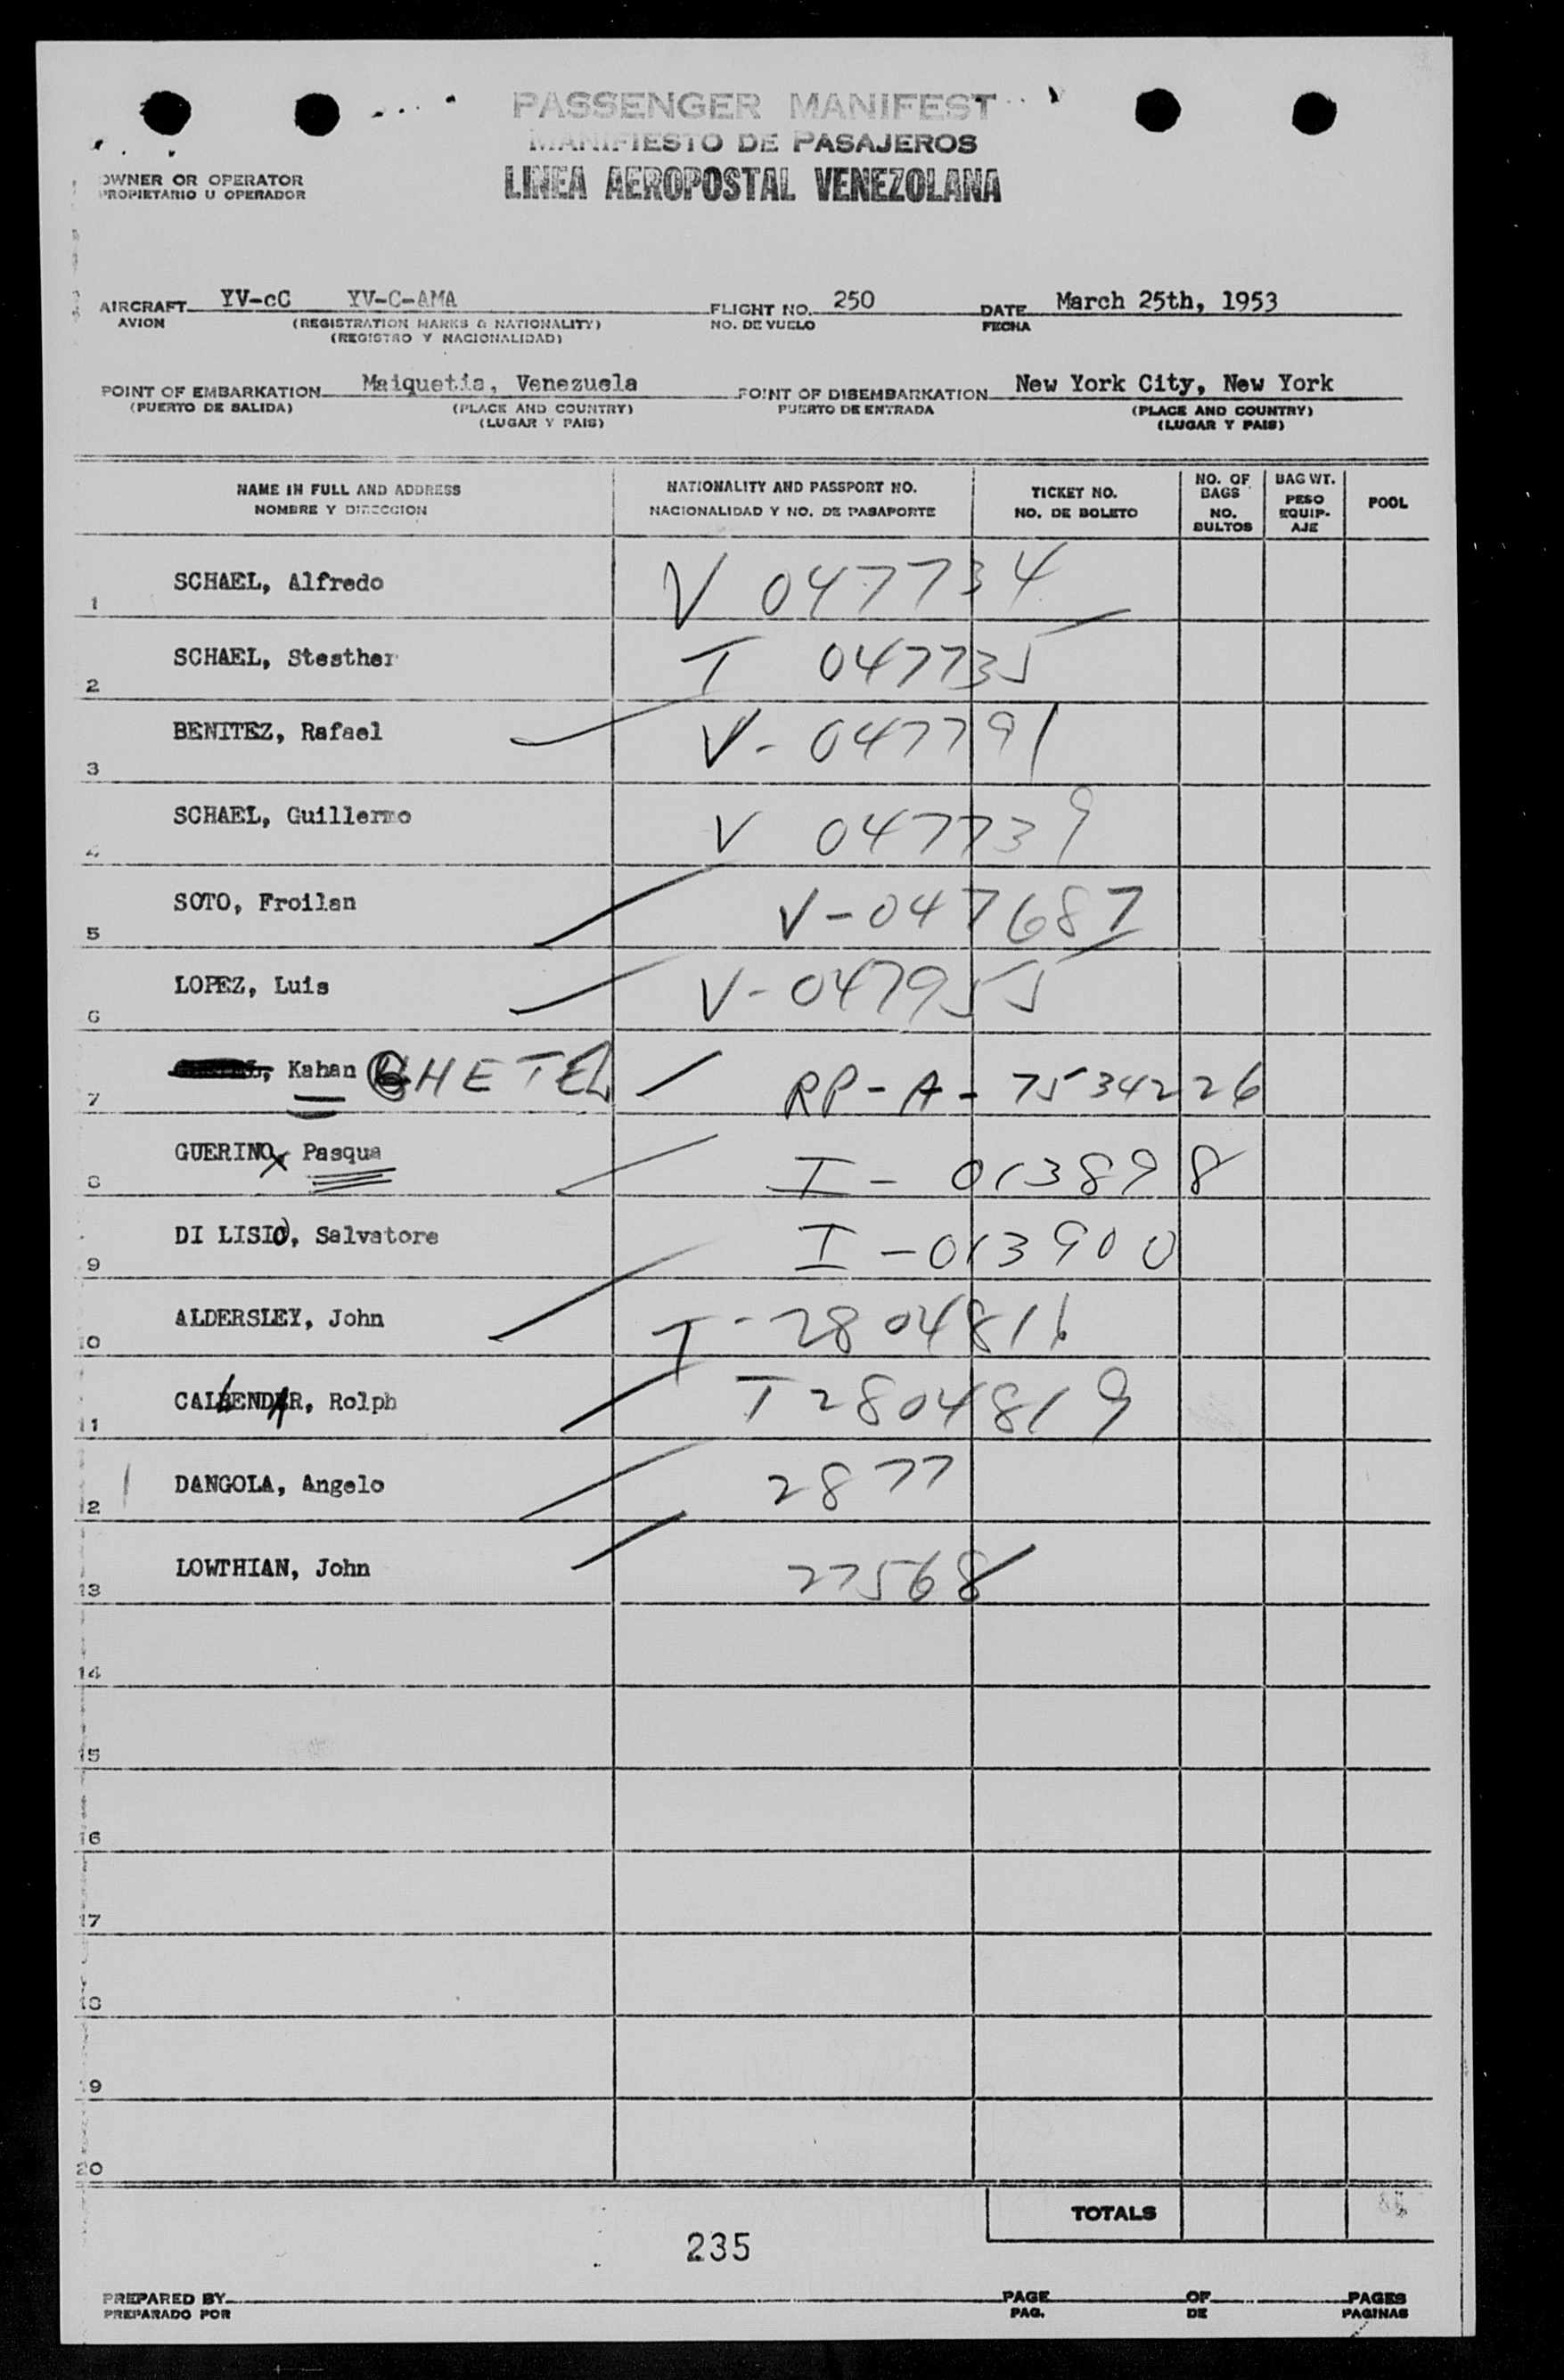 PASSENGER MANIFEST
MANIFIESTO DE PASAJEROS
LINEA AEROPOSTAL VENEZOLANA
OWNER OR OPERATOR
PROPIETARIO U OPERADOR
AIRCRAFT YV-cC YV-C-AMA FLIGHT NO. 250 DATE March 25th, 1953
AVION (REGISTRATION MARKS & NATIONALITY) NO. DE VUELO FECHA
(REGISTRO Y NACIONALIDAD)
POINT OF EMBARKATION Maiquetia, Venezuela POINT OF DISEMBARKATION New York City, New York
(PUERTO DE SALIDA) (PLACE AND COUNTRY) PUERTO DE ENTRADA (PLACE AND COUNTRY)
(LUGAR Y PAIS) (LUGAR Y PAIS)
NAME IN FULL AND ADDRESS NATIONALITY AND PASSPORT NO. TICKET NO. NO. OF BAGS BAG WT. POOL
NOMBRE Y DIRECCION NACIONALIDAD Y NO. DE PASAPORTE NO. DE BOLETO NO. BULTOS PESO EQUIP-AJE
1 SCHAEL, Alfredo V 047734
2 SCHAEL, Stesther T 047735
3 BENITEZ, Rafael V-047791
4 SCHAEL, Guillermo V 047739
5 SOTO, Froilan V-047687
6 LOPEZ, Luis V-047955
7 Kahan GHETEL RP-A-7534226
8 GUERINO, Pasqua I-013898
9 DI LISIO, Salvatore I-013900
10 ALDERSLEY, John T-2804816
11 CALLENDAR, Rolph T 2804819
12 DANGOLA, Angelo 2877
13 LOWTHIAN, John 27568
14
15
16
17
18
19
20
TOTALS
235
PREPARED BY PAGE OF PAGES
PREPARADO POR PAG. DE PAGINAS